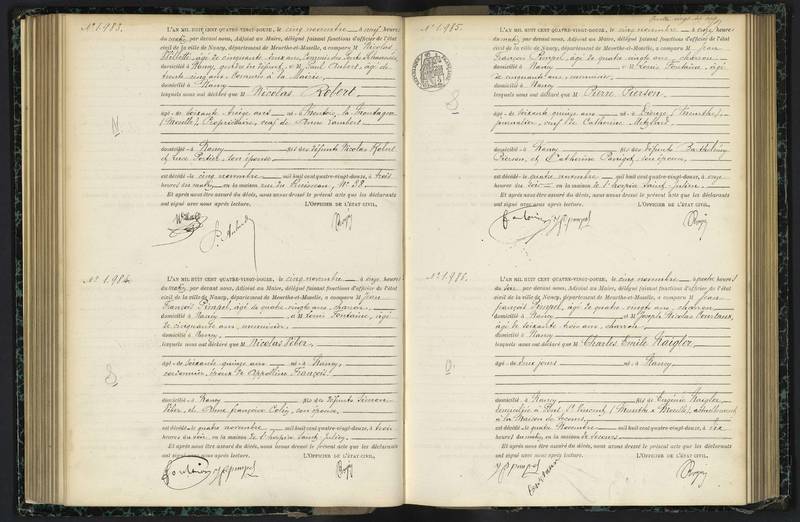 N° 1983.
L'AN MIL HUIT CENT QUATRE-VINGT-DOUZE, le cinq novembre à neuf heures
du matin, par devant nous, Adjoint au Maire, délégué faisant fonctions d'officier de l'état
civil de la ville de Nancy, département de Meurthe-et-Moselle, a comparu M Nicolas
âgé de cinquante
domicilié à Nancy, du défunt, & M Paul Aubert, âgé de
trente cinq ans, à la Mairie,
domicilié à Nancy
lesquels nous ont déclaré que M Nicolas Robert
âgé de soixante treize ans né à la Montagne
(Moselle), Propriétaire, veuf de Anne Lambert
domicilié à Nancy fils des défunts Nicolas Robert
et son épouse
est décédé le cinq novembre mil huit cent quatre-vingt-douze, à trois
heures du matin en la maison rue du Ruisseau, N° 38
Et après nous être assuré du décès, nous avons dressé le présent acte que les déclarants
ont signé avec nous après lecture. L'OFFICIER DE L'ÉTAT CIVIL,
N° 1984.
L'AN MIL HUIT CENT QUATRE-VINGT-DOUZE, le cinq novembre à onze heures
du matin, par devant nous, Adjoint au Maire, délégué faisant fonctions d'officier de l'état
civil de la ville de Nancy, département de Meurthe-et-Moselle, a comparu M Jean
François Pimpel, âgé de quatre vingts ans, charron
domicilié à Nancy & M Louis Fontaine, âgé
de cinquante ans, menuisier
domicilié à Nancy
lesquels nous ont déclaré que M Nicolas Péber
âgé de soixante quinze ans né à Nancy,
cordonnier, époux de Appolline François
domicilié à Nancy fils des défunts Simon
Péber, et Anne françoise son épouse
est décédé le quatre novembre mil huit cent quatre-vingt-douze, à trois
heures du soir en la maison de l'hospice Saint Julien
Et après nous être assuré du décès, nous avons dressé le présent acte que les déclarants
ont signé avec nous après lecture. L'OFFICIER DE L'ÉTAT CIVIL,
N° 1985.
L'AN MIL HUIT CENT QUATRE-VINGT-DOUZE, le cinq novembre à onze heures
du matin, par devant nous, Adjoint au Maire, délégué faisant fonctions d'officier de l'état
civil de la ville de Nancy, département de Meurthe-et-Moselle, a comparu M Jean
François Pimpel, âgé de quatre vingts ans, charron
domicilié à Nancy & M Louis Fontaine, âgé
de cinquante ans, menuisier
domicilié à Nancy
lesquels nous ont déclaré que M Pierre Pierson
âgé de soixante quinze ans né à (Meurthe)
journalier, veuf de Catherine
domicilié à Nancy fils des défunts Barthélémy
Pierson, et Catherine son épouse
est décédé le quatre novembre mil huit cent quatre-vingt-douze, à onze
heures du soir en la maison de l'hospice Saint-Julien
Et après nous être assuré du décès, nous avons dressé le présent acte que les déclarants
ont signé avec nous après lecture. L'OFFICIER DE L'ÉTAT CIVIL,
N° 1986.
L'AN MIL HUIT CENT QUATRE-VINGT-DOUZE, le cinq novembre à quatre heures
du soir, par devant nous, Adjoint au Maire, délégué faisant fonctions d'officier de l'état
civil de la ville de Nancy, département de Meurthe-et-Moselle, a comparu M Jean
françois Pimpel, âgé de quatre vingts ans, charron
domicilié à Nancy & M Joseph Nicolas
âgé de soixante trois ans, charron
domicilié à Nancy
lesquels nous ont déclaré que M Charles Emile Naigler
âgé de deux jours né à Nancy
domicilié à Nancy fils de Eugénie Naigler
domiciliée à Pont St Vincent (Meurthe & Moselle), actuellement
à la Maison de Secours
est décédé le quatre Novembre mil huit cent quatre-vingt-douze, à dix
heures du matin, en la maison de secours
Et après nous être assuré du décès, nous avons dressé le présent acte que les déclarants
ont signé avec nous après lecture. L'OFFICIER DE L'ÉTAT CIVIL,